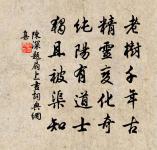 老樹千年古
精靈變化奇
純陽有道士
猶且被渠知
陳深題扇上書詞典網
集